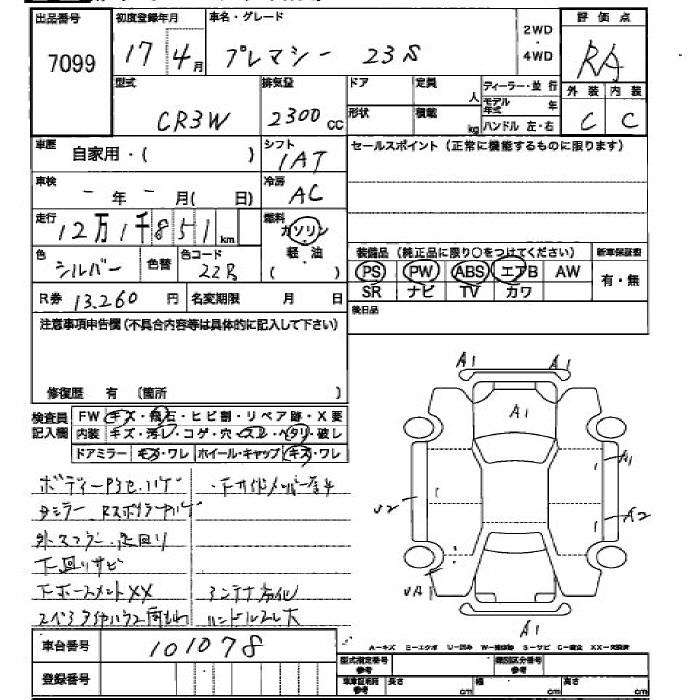 出品番号 初度登録年月 車名・グレード 2WD・4WD 評価点
7099 17年 4月 プレマシー 23S RA
型式 排気量 ドア 定員 人 ディーラー・並行 外装 内装
CR3W 2300cc 形状 積載 kg モデル年式 年 C C
ハンドル 左・右
車歴 自家用・( ) シフト 1AT セールスポイント(正常に機能するものに限ります)
車検 - 年 - 月( 日) 冷房 AC
走行 12万1千851km 燃料 ガソリン 軽・油 ( )
色 シルバー 色替 色コード 22R
装備品(純正品に限り○をつけてください) 新車保証書
PS PW ABS エアB AW 有・無
SR ナビ TV カワ
R券 13,260円 名変期限 月 日 後日品
注意事項申告欄(不具合内容等は具体的に記入して下さい)
修復歴 有 (箇所 )
検査員記入欄 FW キズ・飛石・ヒビ割・リペア跡・X要
内装 キズ・汚レ・コゲ・穴・スレ・ヘタリ・破レ
ドアミラー キズ・ワレ ホイール・キャップ キズ・ワレ
外マフラー・足回り
下回りサビ
アンテナ劣化
ハンドルスレ大
A1 A1
A1
A1
U2 A2
UA1
A1
車台番号 101078
A-キズ E-エクボ U-凹み W-補修跡 S-サビ C-腐食 XX-交換済
登録番号 型式指定番号参考 類別区分番号参考
車車証明用参考 長さ cm 幅 cm 高さ cm